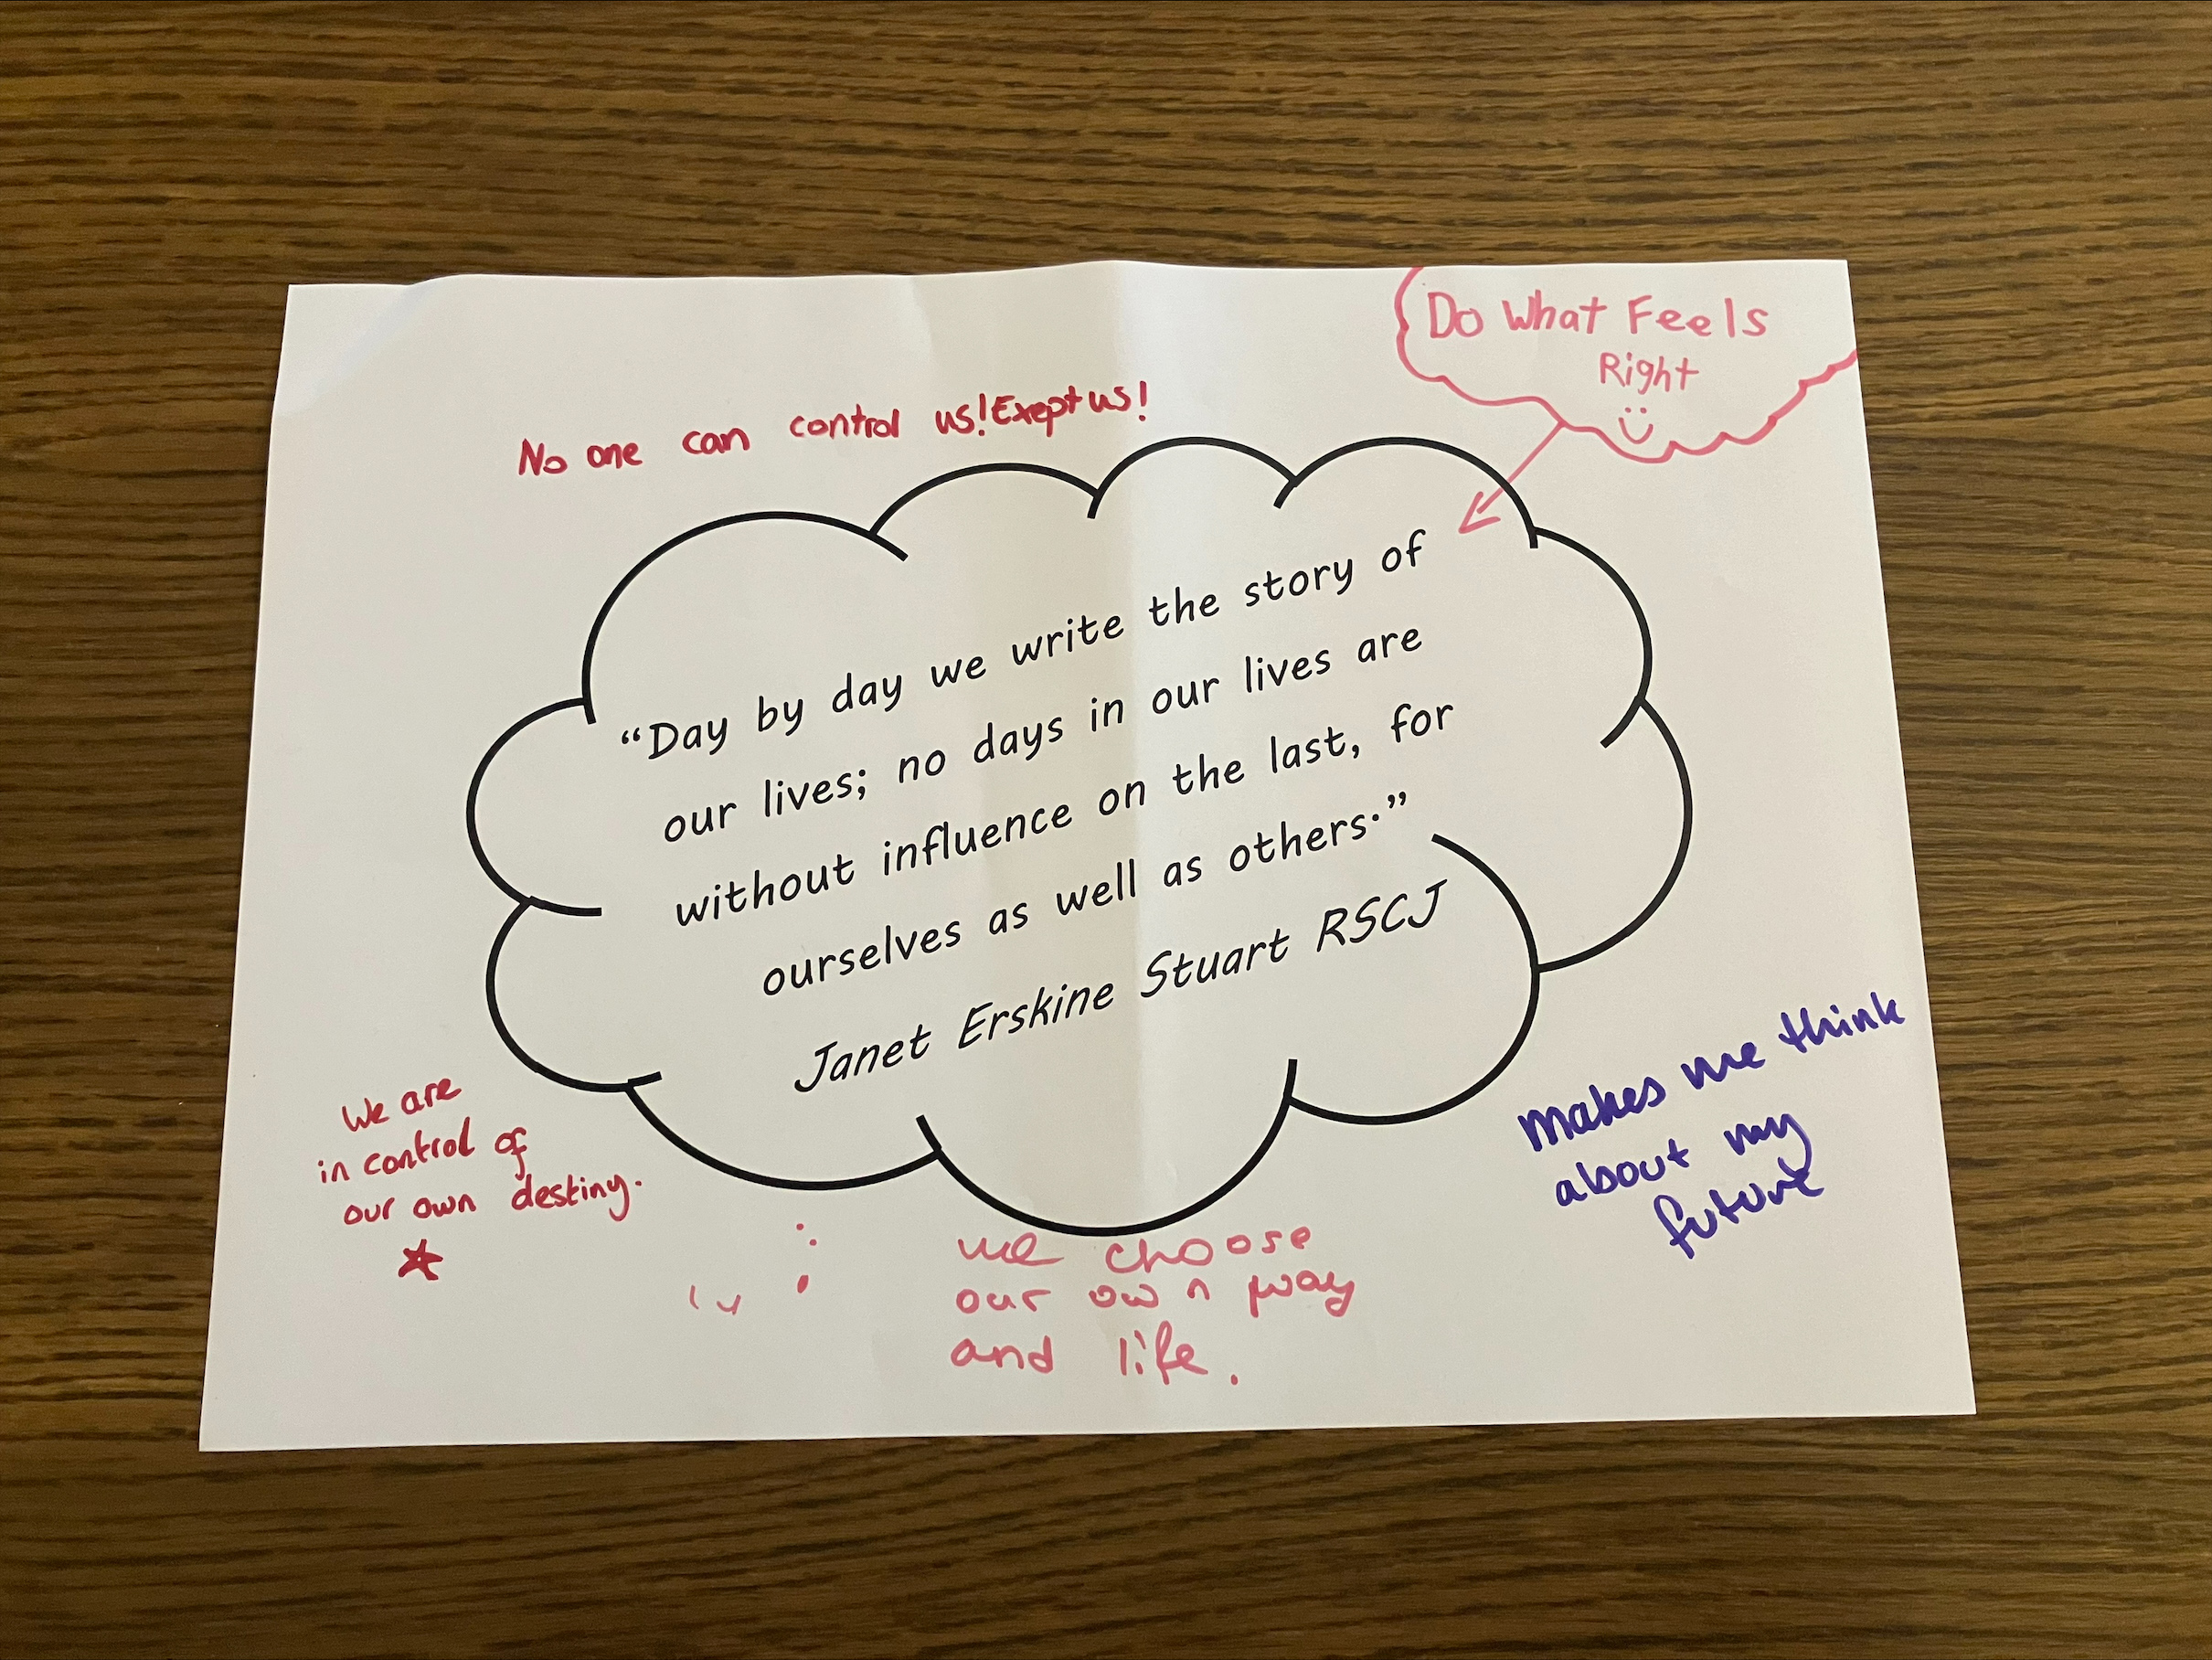 Do What Feels
Right
No one can control us! Exept us!
“Day by day we write the story of
our lives; no days in our lives are
without influence on the last, for
ourselves as well as others.”
Janet Erskine Stuart RSCJ
makes me think
about my
future
We are
in control of
our own destiny.
we choose
our own way
and life.